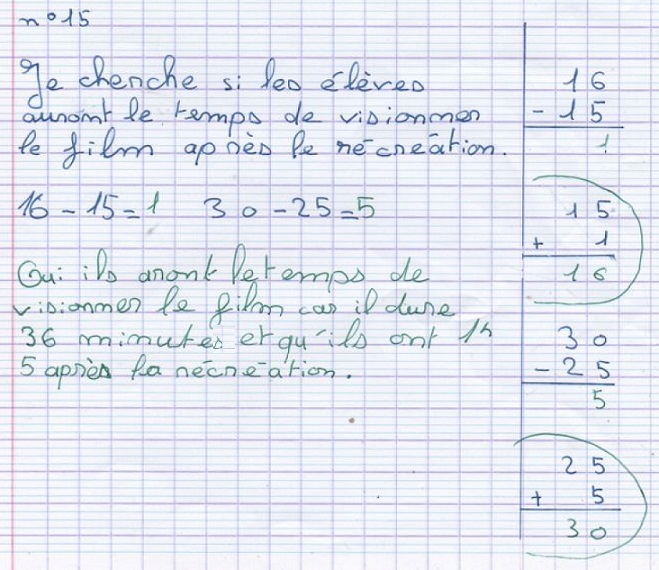 n°15
Je cherche si les élèves
auront le temps de visionner
le film après le récréation.
16 - 15 = 1 30 - 25 = 5
Oui ils aront le temps de
visionner le film car il dure
36 minutes et qu'ils ont 1h
5 après la récréation.
16
- 15
1
15
+ 1
16
30
- 25
5
25
+ 5
30